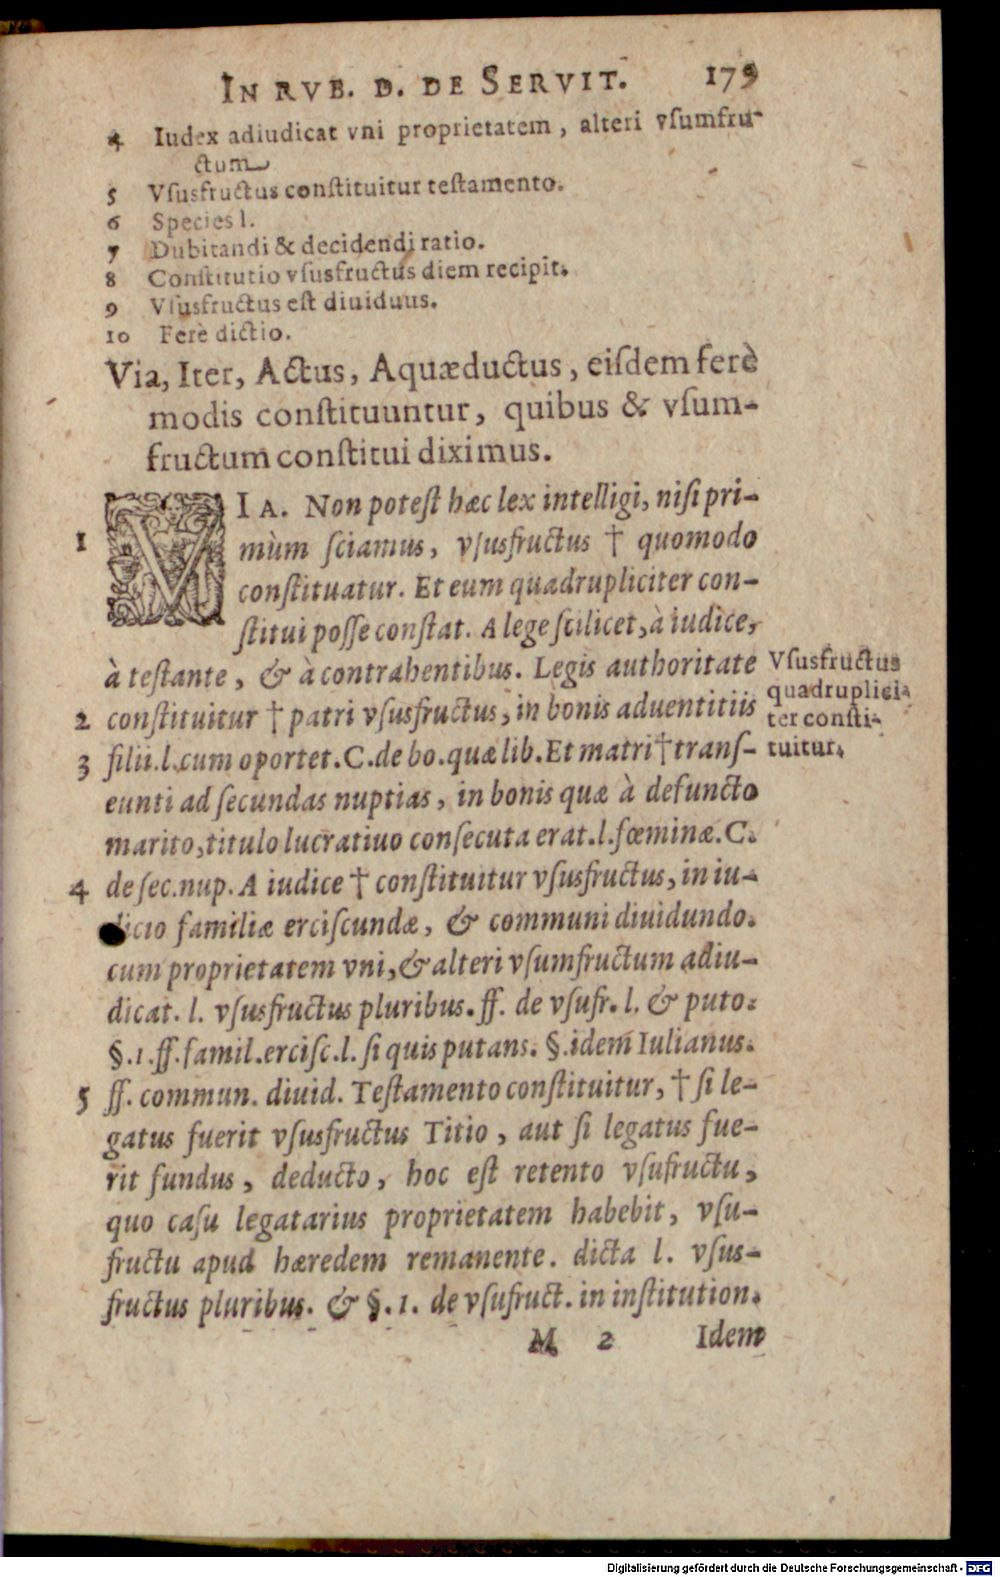 IN RVB. D. DE SERVIT. 179
4 Iudex adiudicat vni proprietatem, alteri vſumfru-
ctum
5 Vſusfructus conſtituitur teſtamento.
6 Species l.
7 Dubitandi & decidendi ratio.
8 Conſtitutio vſusfructus diem recipit.
9 Vſusfructus eſt diuiduus.
10 Ferè dictio.
Via, Iter, Actus, Aquæductus, eiſdem ferè
modis conſtituuntur, quibus & vſum-
fructum conſtitui diximus.
VIA. Non poteſt hæc lex intelligi, niſi pri-
1 mùm ſciamus, vſusfructus † quomodo
conſtituatur. Et eum quadrupliciter con-
ſtitui poſſe conſtat. A lege ſcilicet, à iudice,
à teſtante, & à contrahentibus. Legis authoritate
2 conſtituitur † patri vſusfructus, in bonis aduentitiis
3 filii. l. cum oportet. C. de bo. quæ lib. Et matri † tranſ-
eunti ad ſecundas nuptias, in bonis quæ à defuncto
marito, titulo lucratiuo conſecuta erat. l. fœminæ. C.
4 de ſec. nup. A iudice † conſtituitur vſusfructus, in iu-
dicio familiæ erciſcundæ, & communi diuidundo.
cum proprietatem vni, & alteri vſumfructum adiu-
dicat. l. vſusfructus pluribus. ff. de vſufr. l. & puto.
§. 1. ff. famil. erciſc. l. ſi quis putans. §. idem Iulianus.
5 ff. commun. diuid. Teſtamento conſtituitur, † ſi le-
gatus fuerit vſusfructus Titio, aut ſi legatus fue-
rit fundus, deducto, hoc eſt retento vſufructu,
quo caſu legatarius proprietatem habebit, vſu-
fructu apud hæredem remanente. dicta l. vſus-
fructus pluribus. & §. 1. de vſufruct. in inſtitution.
M 2 Idem
Vſusfructus
quadruplici-
ter conſti-
tuitur.
Digitalisierung gefördert durch die Deutsche Forschungsgemeinschaft - DFG